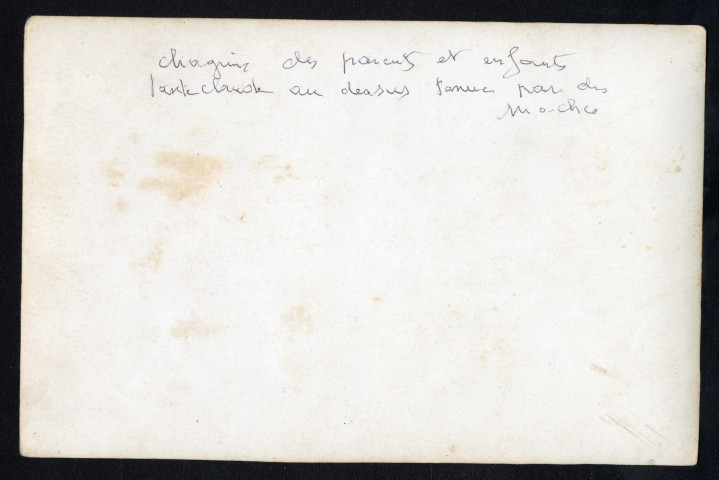 chagrins des parents et enfants
tante claude au dessus tenue par des